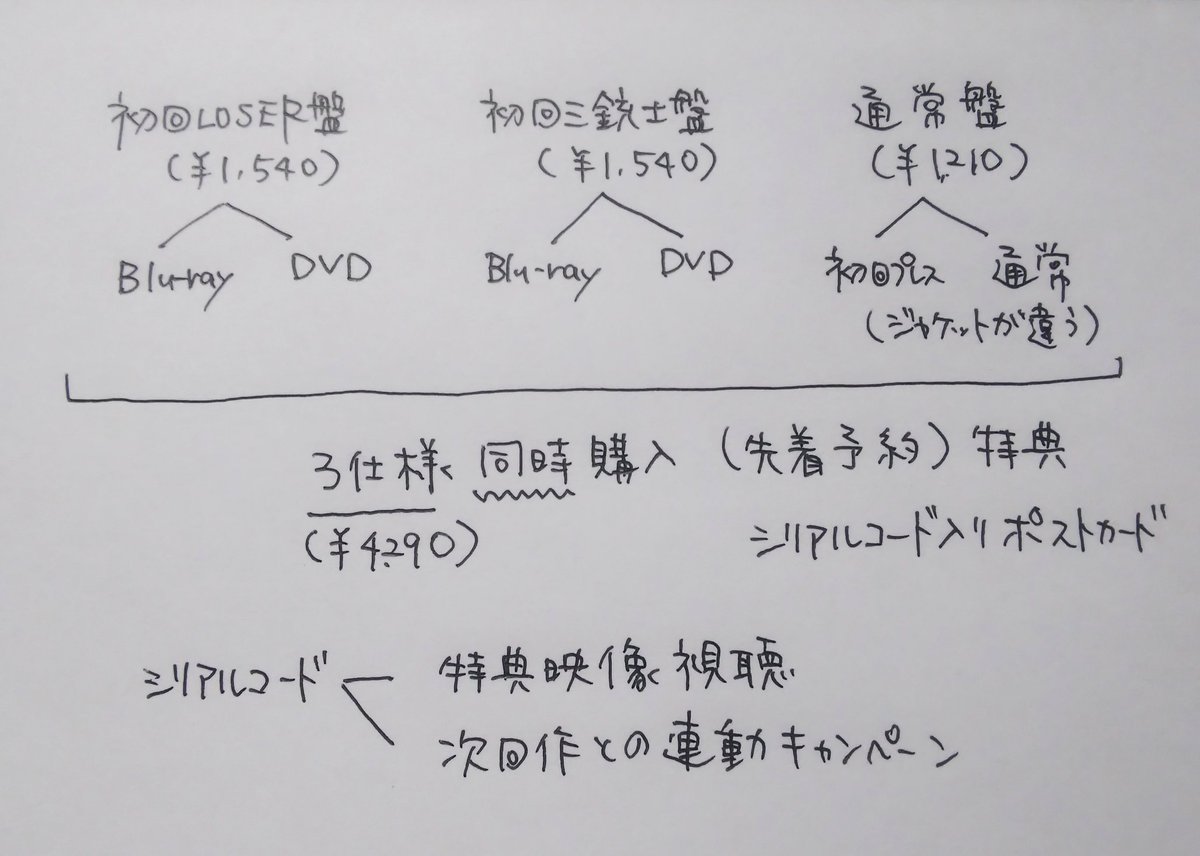 初回LOSER盤 初回三銃士盤 通常盤
(¥1,540) (¥1,540) (¥1,210)
Blu-ray DVD Blu-ray DVD 初回プレス 通常
(ジャケットが違う)
3仕様 同時購入 (先着予約) 特典
(¥4,290) シリアルコード入りポストカード
シリアルコード 特典映像視聴
次回作との連動キャンペーン